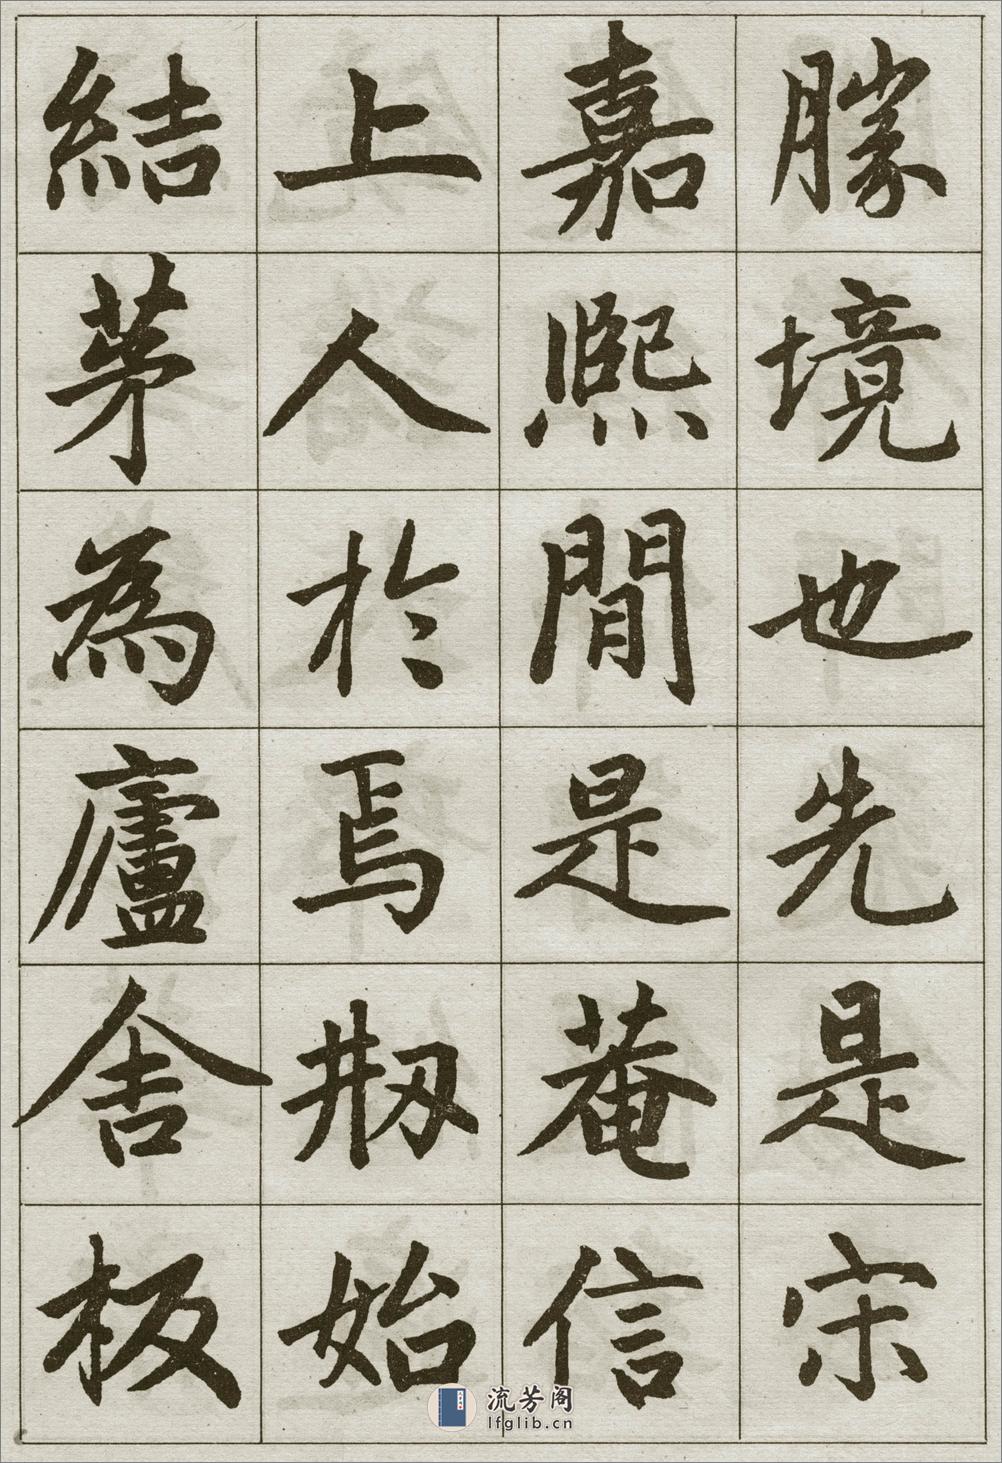 勝境也先是宋
嘉熙間是菴信
上人於焉剏始
結茅為廬舍板
流芳阁
lfglib.cn